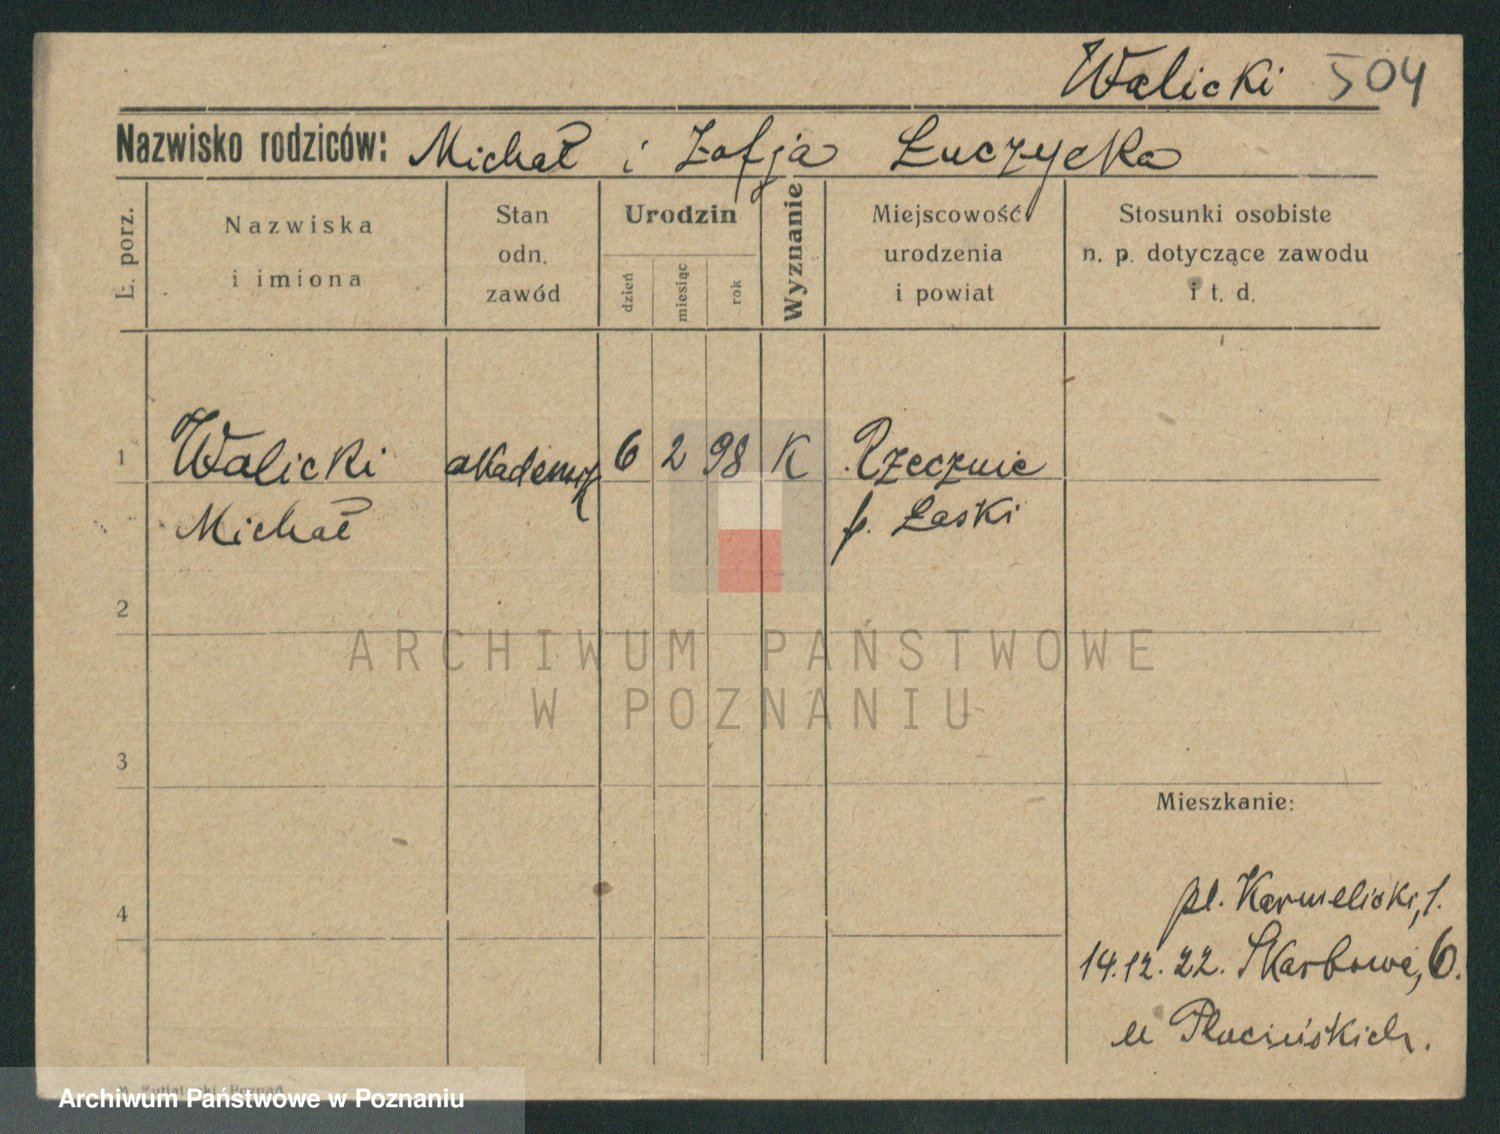 Walicki 504
Nazwisko rodziców: Michał i Zofja Łuczycka
Ł. porz.
Nazwiska
i imiona
Stan
odn.
zawód
Urodzin
dzień
miesiąc
rok
Wyznanie
Miejscowość
urodzenia
i powiat
Stosunki osobiste
n. p. dotyczące zawodu
i t. d.
1 Walicki akademik 6 2 98 K Rzecznie
Michał p. Łaski
2
ARCHIWUM PAŃSTWOWE
W POZNANIU
3
Mieszkanie:
4
pl. Karmelicki, 1.
14.12.22. Skarbowa, 6.
u Płucińskich.
Poznań
Archiwum Państwowe w Poznaniu